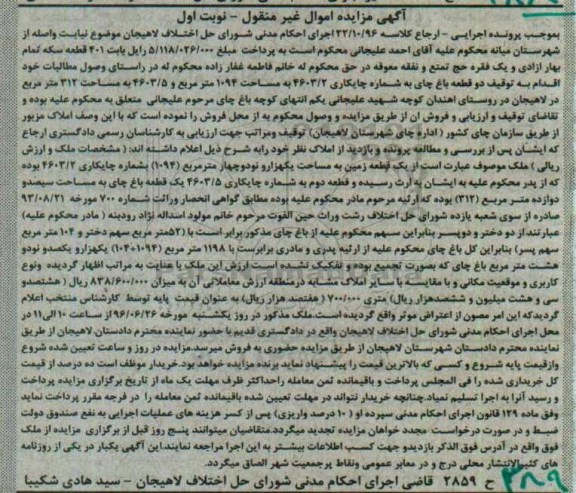 آگهی مزایده اموال غیر منقول - نوبت اول
بموجب پرونده اجرایی - ارجاع کلاسه ۲۲/۱۰/۹۶ اجرای احکام مدنی شورای حل اختلاف لاهیجان موضوع نیابت واصله از
شهرستان میانه محکوم علیه آقای احمد علیجانی محکوم است به پرداخت مبلغ ۵/۱۱۸/۰۲۶/۰۰۰ رایل بابت ۴۰۱ قطعه سکه تمام
بهار ازادی و یک فقره حج تمتع و نفقه معوقه در حق محکوم له خانم فاطمه غفار زاده محکوم له در راستای وصول مطالبات خود
اقدام به توقیف دو قطعه باغ چای به شماره چایکاری ۴۶۰۳/۲ به مساحت ۱۰۹۴ متر مربع و ۴۶۰۳/۵ به مساحت ۳۱۲ متر مربع
در لاهیجان در روستای اهندان کوچه شهید علیجانی یکم انتهای کوچه باغ چای مرحوم علیجانی متعلق به محکوم علیه بوده و
تقاضای توقیف و ارزیابی و فروش ان از طریق مزایده و وصول محکوم به از محل فروش را نموده است که با این وصف املاک مزبور
از طریق سازمان چای کشور ( اداره چای شهرستان لاهیجان) توقیف ومراتب جهت ارزیابی به کارشناسان رسمی دادگستری ارجاع
که ایشان پس از بررسی و مطالعه پرونده و بازدید از املاک نظر خود رابه شرح ذیل اعلام داشته اند: ( مشخصات ملک و ارزش
ریالی ) ملک موصوف عبارت است از یک قطعه زمین به مساحت یکهزارو نودوچهار مترمربع (۱۰۹۴) بشماره چایکاری ۴۶۰۳/۲ بوده
که از پدر محکوم علیه به ایشان به ارث رسیده و قطعه دوم به شماره چایکاری ۴۶۰۳/۵ یک قطعه باغ چای به مساحت سیصدو
دوازده متر مربع (۳۱۲) بوده که ارثیه مرحوم مادر محکوم علیه بوده مطابق گواهی انحصار وراثت شماره ۷۰۰ مورخه ۹۳/۰۸/۲۱
صادره از سوی شعبه یازده شورای حل اختلاف رشت وراث حین الفوت مرحوم خانم مولود اسداله نژاد رودبنه ( مادر محکوم علیه)
عبارتند از دو دختر و دوپسر بنابراین سهم محکوم علیه از باغ چای مذکور برابر است با (۵۲متر مربع سهم دختر و ۱۰۴ متر مربع
سهم پسر) بنابراین کل باغ چای محکوم علیه از ارثیه پدری و مادری برابرست با ۱۱۹۸ متر مربع (۱۰۹۴+۱۰۴) یکهزارو یکصدو نودو
هشت متر مربع باغ چای که بصورت تجمیع بوده و تفکیک نشده است ارزش این ملک با عنایت به مراتب اظهار گردیده ونوع
کاربری و موقعیت مکانی و با مقایسه با سایر املاک مشابه درمنطقه ارزش معاملاتی آن به میزان ۸۳۸/۶۰۰/۰۰۰ ریال ( هشتصدو
سی و هشت میلیون و ششصدهزار ریال) متری ۷۰۰/۰۰۰ ( هفتصد هزار ریال) به عنوان قیمت پایه توسط کارشناس منتخب اعلام
گردیدکه این امر مصون از اعتراض موثر واقع گردیده است.ملک مذکور در روز یکشنبه مورخه ۹۶/۰۶/۲۶ از ساعت ۱۰ الی۱۱ در
محل اجرای احکام مدنی شورای حل اختلاف لاهیجان واقع در دادگستری قدیم با حضور نماینده محترم دادستان لاهیجان از طریق
نماینده محترم دادستان شهرستان لاهیجان از طریق مزایده حضوری به فروش میرسد.مزایده در روز و ساعت تعیین شده شروع
وازقیمت پایه شروع و کسی که بالاترین قیمت را پیشنهاد نماید برنده مزایده خواهد بود.خریدار موظف است ده درصد از قیمت
کل خریداری شده را فی المجلس پرداخت و باقیمانده ثمن معامله راحداکثر ظرف مهلت یک ماه از تاریخ برگزاری مزایده پرداخت
و رسید آنرا به اجرا تسلیم نماید.چنانچه خریدار نتواند در مهلت تعیین شده باقیمانده ثمن معامله را در فرجه مقرر پرداخت نماید
وفق ماده ۱۲۹ قانون اجرای احکام مدنی سپرده او ( ۱۰ درصد واریزی) پس از کسر هزینه های عملیات اجرایی به نفع صندوق دولت
ضبط و در صورت درخواست مجدد خواهان مزایده تجدید میگردد.متقاضیان میتوانند پنج روز قبل از برگزاری مزایده از ملک
فوق واقع در آدرس فوق الذکر بازدیدو جهت کسب اطلاعات بیشتر به این اجرا مراجعه نمایند.این آگهی یکبار در یکی از روزنامه
های کثیرالانتشار محلی درج و در معابر عمومی ونقاط پرجمعیت شهر الصاق میگردد.
ح ۲۸۵۹ قاضی اجرای احکام مدنی شورای حل اختلاف لاهیجان - سید هادی شکیبا